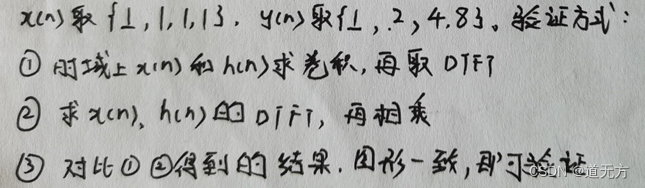 x(n)取{1,1,1,1}. y(n)取{1,2,4,8}。验证方式:
① 时域上x(n)和h(n)求卷积,再取DTFT
② 求x(n),h(n)的DTFT,再相乘
③ 对比①②得到的结果.图形一致,即可验证
CSDN @道无方